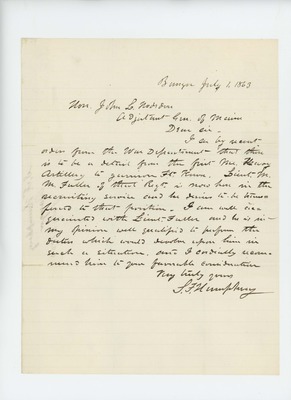 Bangor July 1, 1863
Hon. John L. Hodsdon
Adjutant Gen. of Maine
Dear sir.
I see by recent
order from the War Department that there
is to be a detail from the first Me. Heavy
Artillery to garrison Ft. Knox. Lieut. M.
M. Fuller of that Regt. is now here in the
recruiting service and he desires to be trans-
ferred to that position. I am well ac-
quainted with Lieut. Fuller and he is in
my opinion well qualified to perform the
duties which would devolve upon him in
such a situation, and I cordially recom-
mend him to your favorable consideration
Very truly yours
S. F. Humphrey